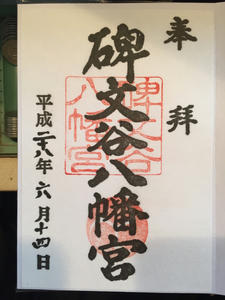 奉拝
碑文谷八幡宮
平成二十八年六月十四日
碑文谷
八幡宮